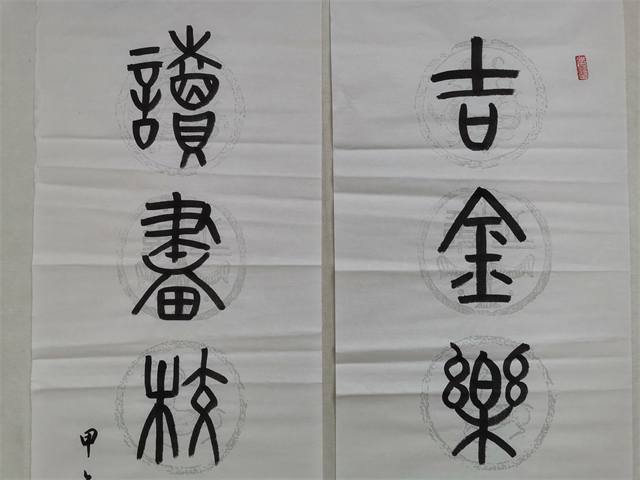 吉金樂
讀畫校
甲